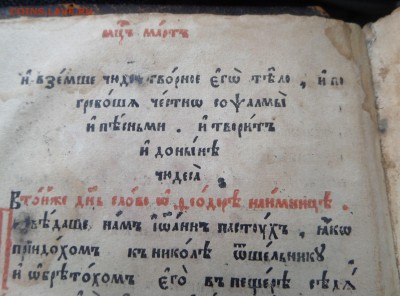 мц҃ъ мартъ
И вземше чюдотворное его̀ тѣло, и по
гребошѧ честнѡ со ѱалмы̀
и пѣсньми. и творитъ
и донынѣ
чюдеса̀
В то́йже дн҃ь слово ѡ ѳеодорѣ наимницѣ.
Повѣдаше намъ іѡаннъ пастꙋхъ, ꙗкѡ
придохомъ къ николѣ ѿшельникꙋ
и ѡбрѣтохомъ его̀ въ пещерѣ сѣдѧ